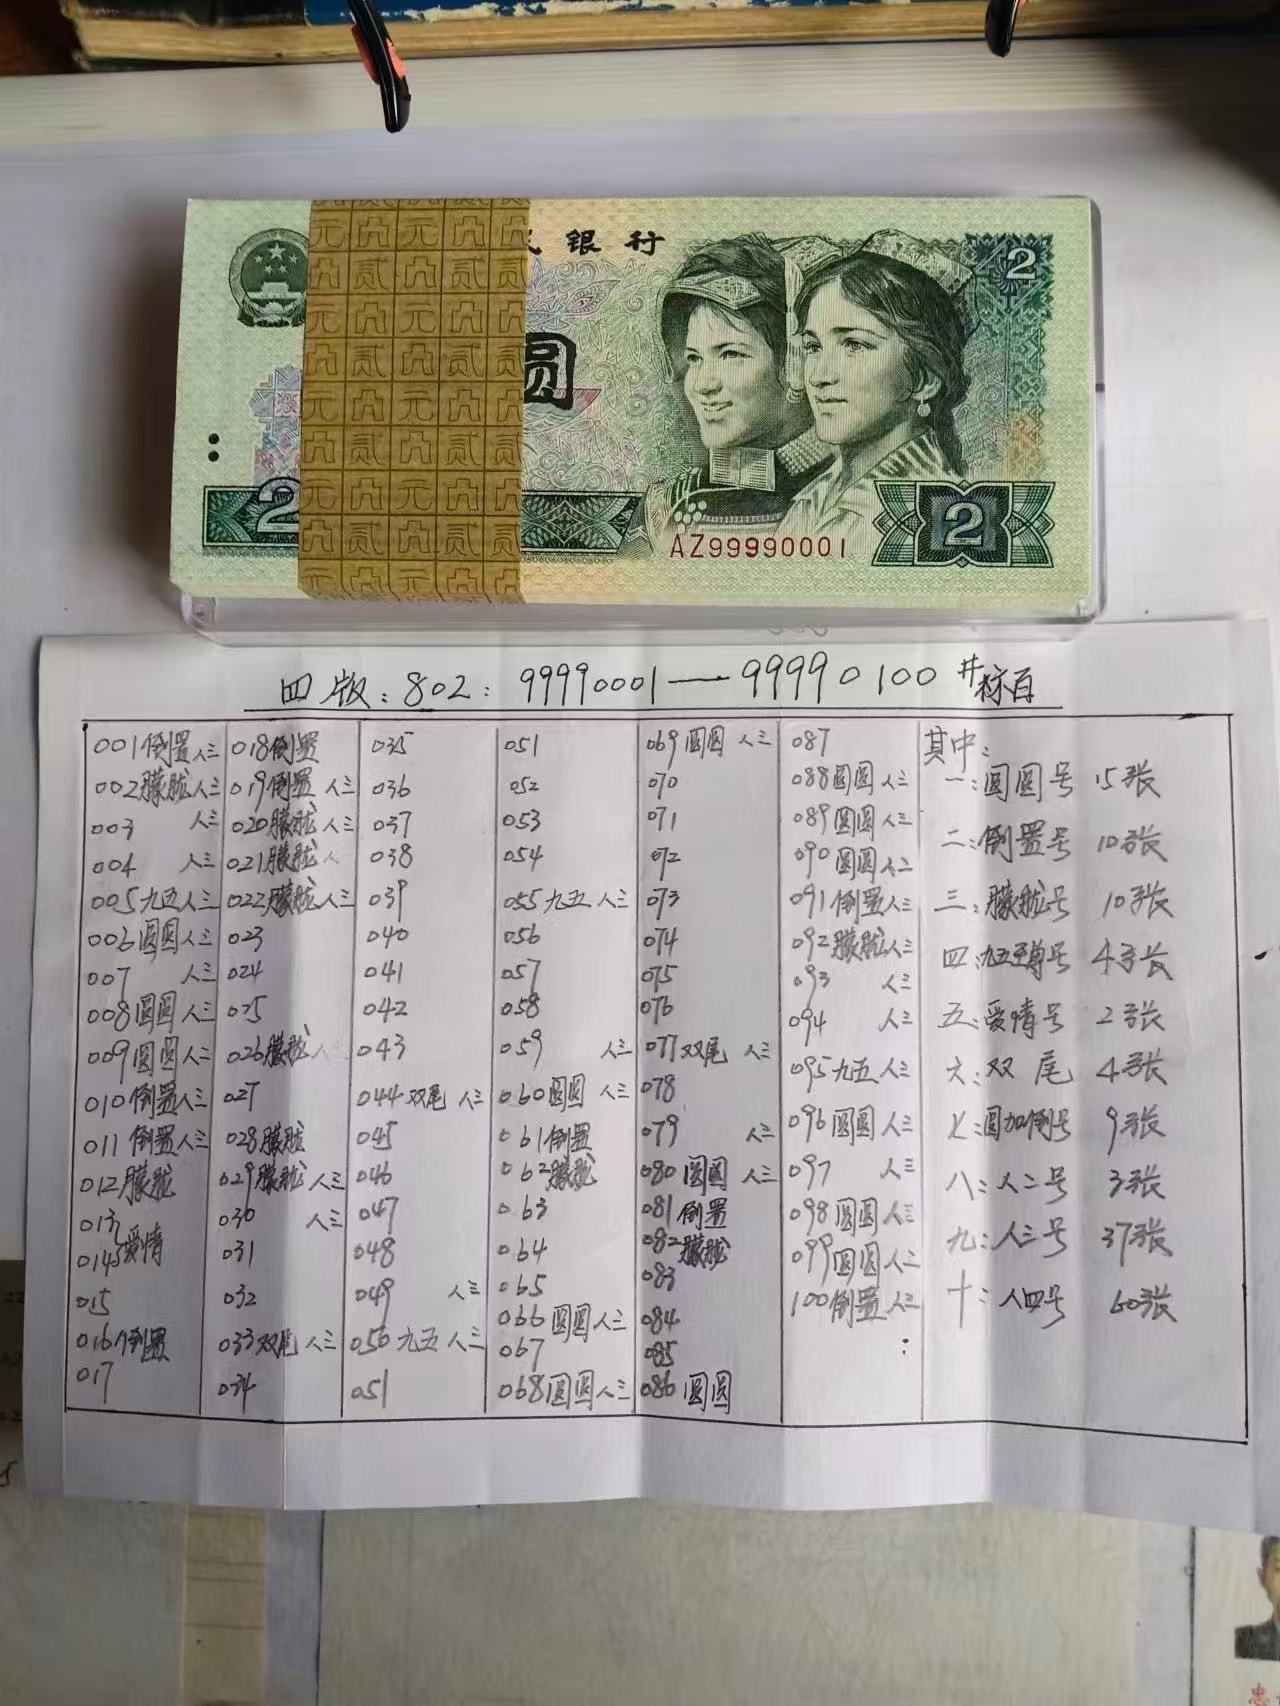 民银行
2
圆
2
2
AZ99990001
四版:802:99990001—99990100#标百
001倒置人三
002朦胧人三
003 人三
004 人三
005九五人三
006圆圆人三
007 人三
008圆圆人三
009圆圆人三
010倒置人三
011倒置人三
012朦胧
013
0145爱情
015
016倒置
017
018倒置
019倒置人三
020朦胧人三
021朦胧人
022朦胧人三
023
024
025
026朦胧人
027
028朦胧
029朦胧人三
030 人三
031
032
033双尾人三
034
035
036
037
038
039
040
041
042
043
044双尾人三
045
046
047
048
049 人三
050九五人三
051
051
052
053
054
055九五人三
056
057
058
059 人三
060圆圆人三
061倒置
062朦胧
063
064
065
066圆圆人三
067
068圆圆人三
069圆圆人三
070
071
072
073
074
075
076
077双尾人三
078
079 人三
080圆圆人三
081倒置
082朦胧
083
084
085
086圆圆
087
088圆圆人三
089圆圆人三
090圆圆人二
091倒置人三
092朦胧人三
093 人三
094 人三
095九五人三
096圆圆人三
097 人三
098圆圆人三
099圆圆人二
100倒置人三
其中:
一:圆圆号 15张
二:倒置号 10张
三:朦胧号 10张
四:九五至尊号 4张
五:爱情号 2张
六:双尾 4张
七:圆加倒号 9张
八:人二号 3张
九:人三号 37张
十:人四号 60张